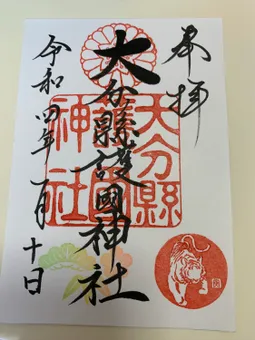 奉拝
大分縣護國神社
大分縣
護國
神社
令和四年一月十日